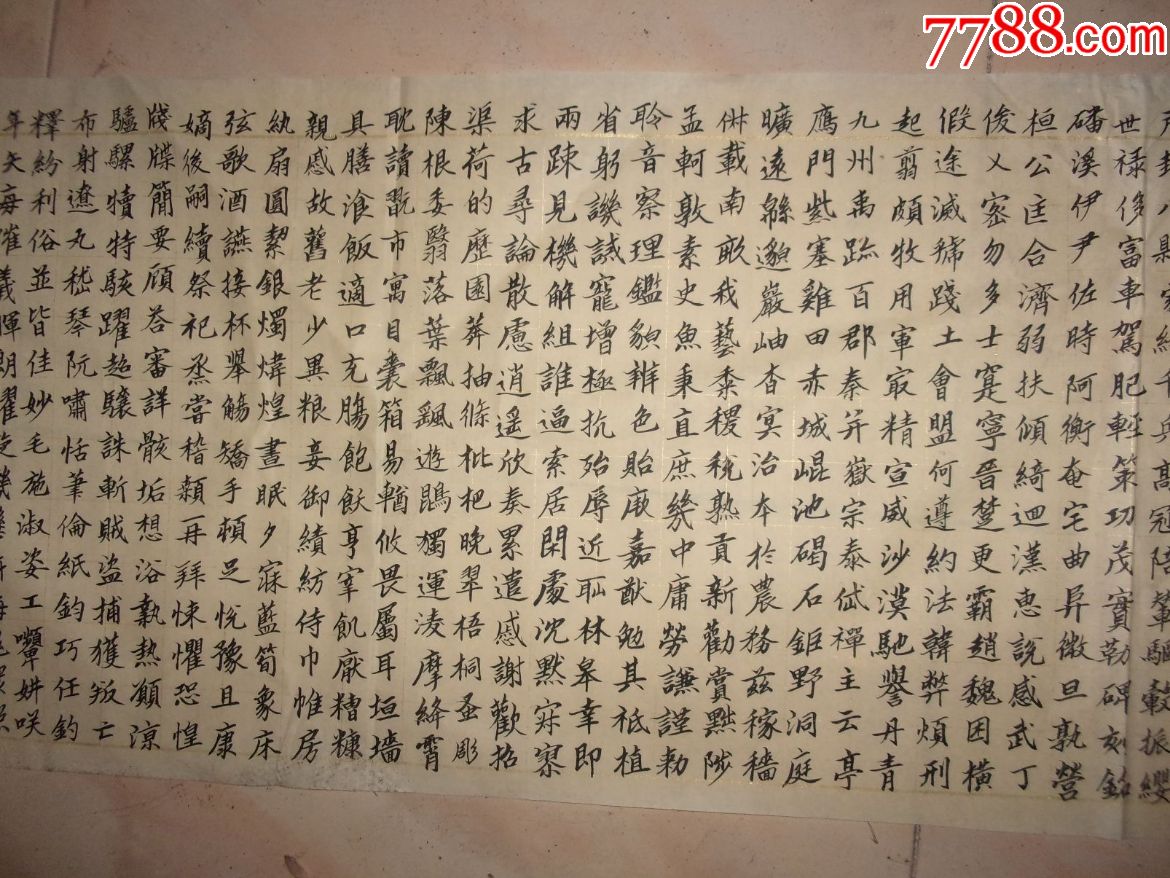 7788.com
世祿侈富車駕肥輕策功茂實勒碑刻銘
磻溪伊尹佐時阿衡奄宅曲阜微旦孰營
桓公匡合濟弱扶傾綺迴漢惠說感武丁
俊乂密勿多士寔寧晉楚更霸趙魏困橫
假途滅虢踐土會盟何遵約法韓弊煩刑
起翦頗牧用軍最精宣威沙漠馳譽丹青
九州禹跡百郡秦并嶽宗泰岱禪主云亭
鴈門紫塞雞田赤城崐池碣石鉅野洞庭
曠遠緜邈巖岫杳冥治本於農務茲稼穡
俶載南畝我藝黍稷稅熟貢新勸賞黜陟
孟軻敦素史魚秉直庶幾中庸勞謙謹勑
聆音察理鑑貌辨色貽厥嘉猷勉其祗植
省躬譏誡寵增極抗殆辱近恥林皋幸即
兩疎見機解組誰逼索居閑處沈默寂寥
求古尋論散慮逍遙欣奏累遣慼謝歡招
渠荷的歷園莽抽條枇杷晚翠梧桐蚤彫
陳根委翳落葉飄颻遊鵾獨運凌摩絳霄
耽讀翫市寓目囊箱易輶攸畏屬耳垣墻
具膳飡飯適口充腸飽飫亨宰飢厭糟糠
親慼故舊老少異粮妾御績紡侍巾帷房
紈扇圓絜銀燭煒煌晝眠夕寐藍筍象床
弦歌酒讌接杯舉觴矯手頓足悅豫且康
嫡後嗣續祭祀烝嘗稽顙再拜悚懼恐惶
牋牒簡要顧答審詳骸垢想浴執熱願涼
驢騾犢特駭躍超驤誅斬賊盜捕獲叛亡
布射遼丸嵇琴阮嘯恬筆倫紙鈞巧任釣
釋紛利俗並皆佳妙毛施淑姿工嚬妍咲
年矢每催羲暉朗耀